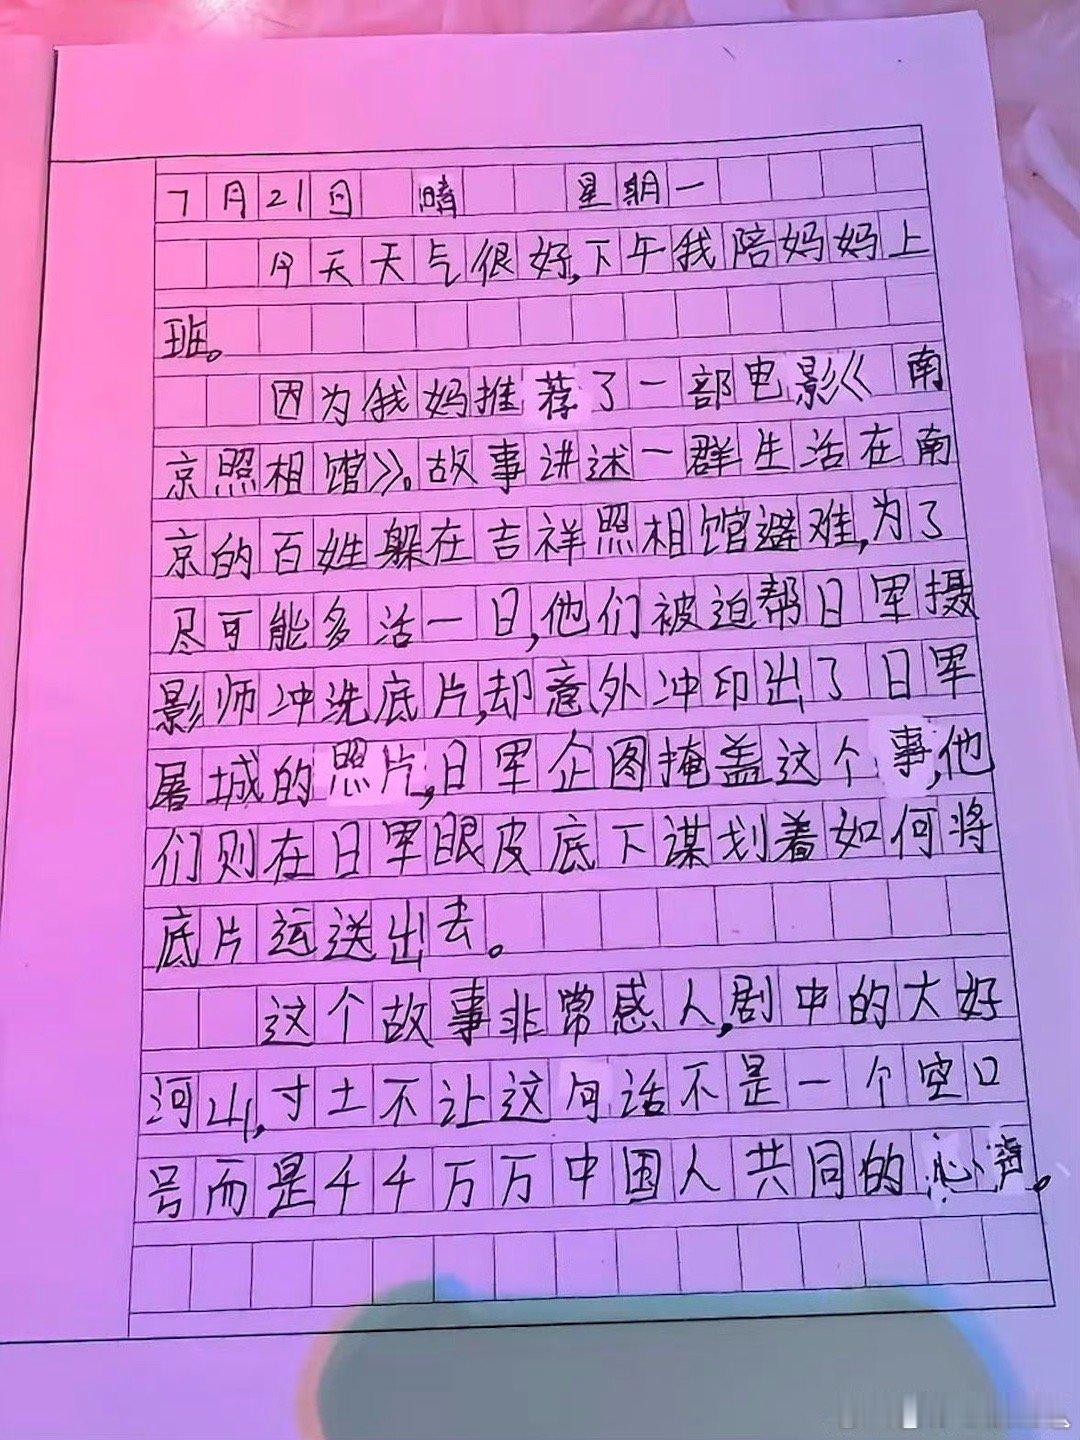 7月21日 晴 星期一
今天天气很好,下午我陪妈妈上
班。
因为我妈推荐了一部电影《南
京照相馆》。故事讲述一群生活在南
京的百姓躲在吉祥照相馆避难,为了
尽可能多活一日,他们被迫帮日军摄
影师冲洗底片,却意外冲印出了日军
屠城的照片,日军企图掩盖这个事,他
们则在日军眼皮底下谋划着如何将
底片运送出去。
这个故事非常感人,剧中的大好
河山,寸土不让这句话不是一个空口
号而是千千万万中国人共同的心声。